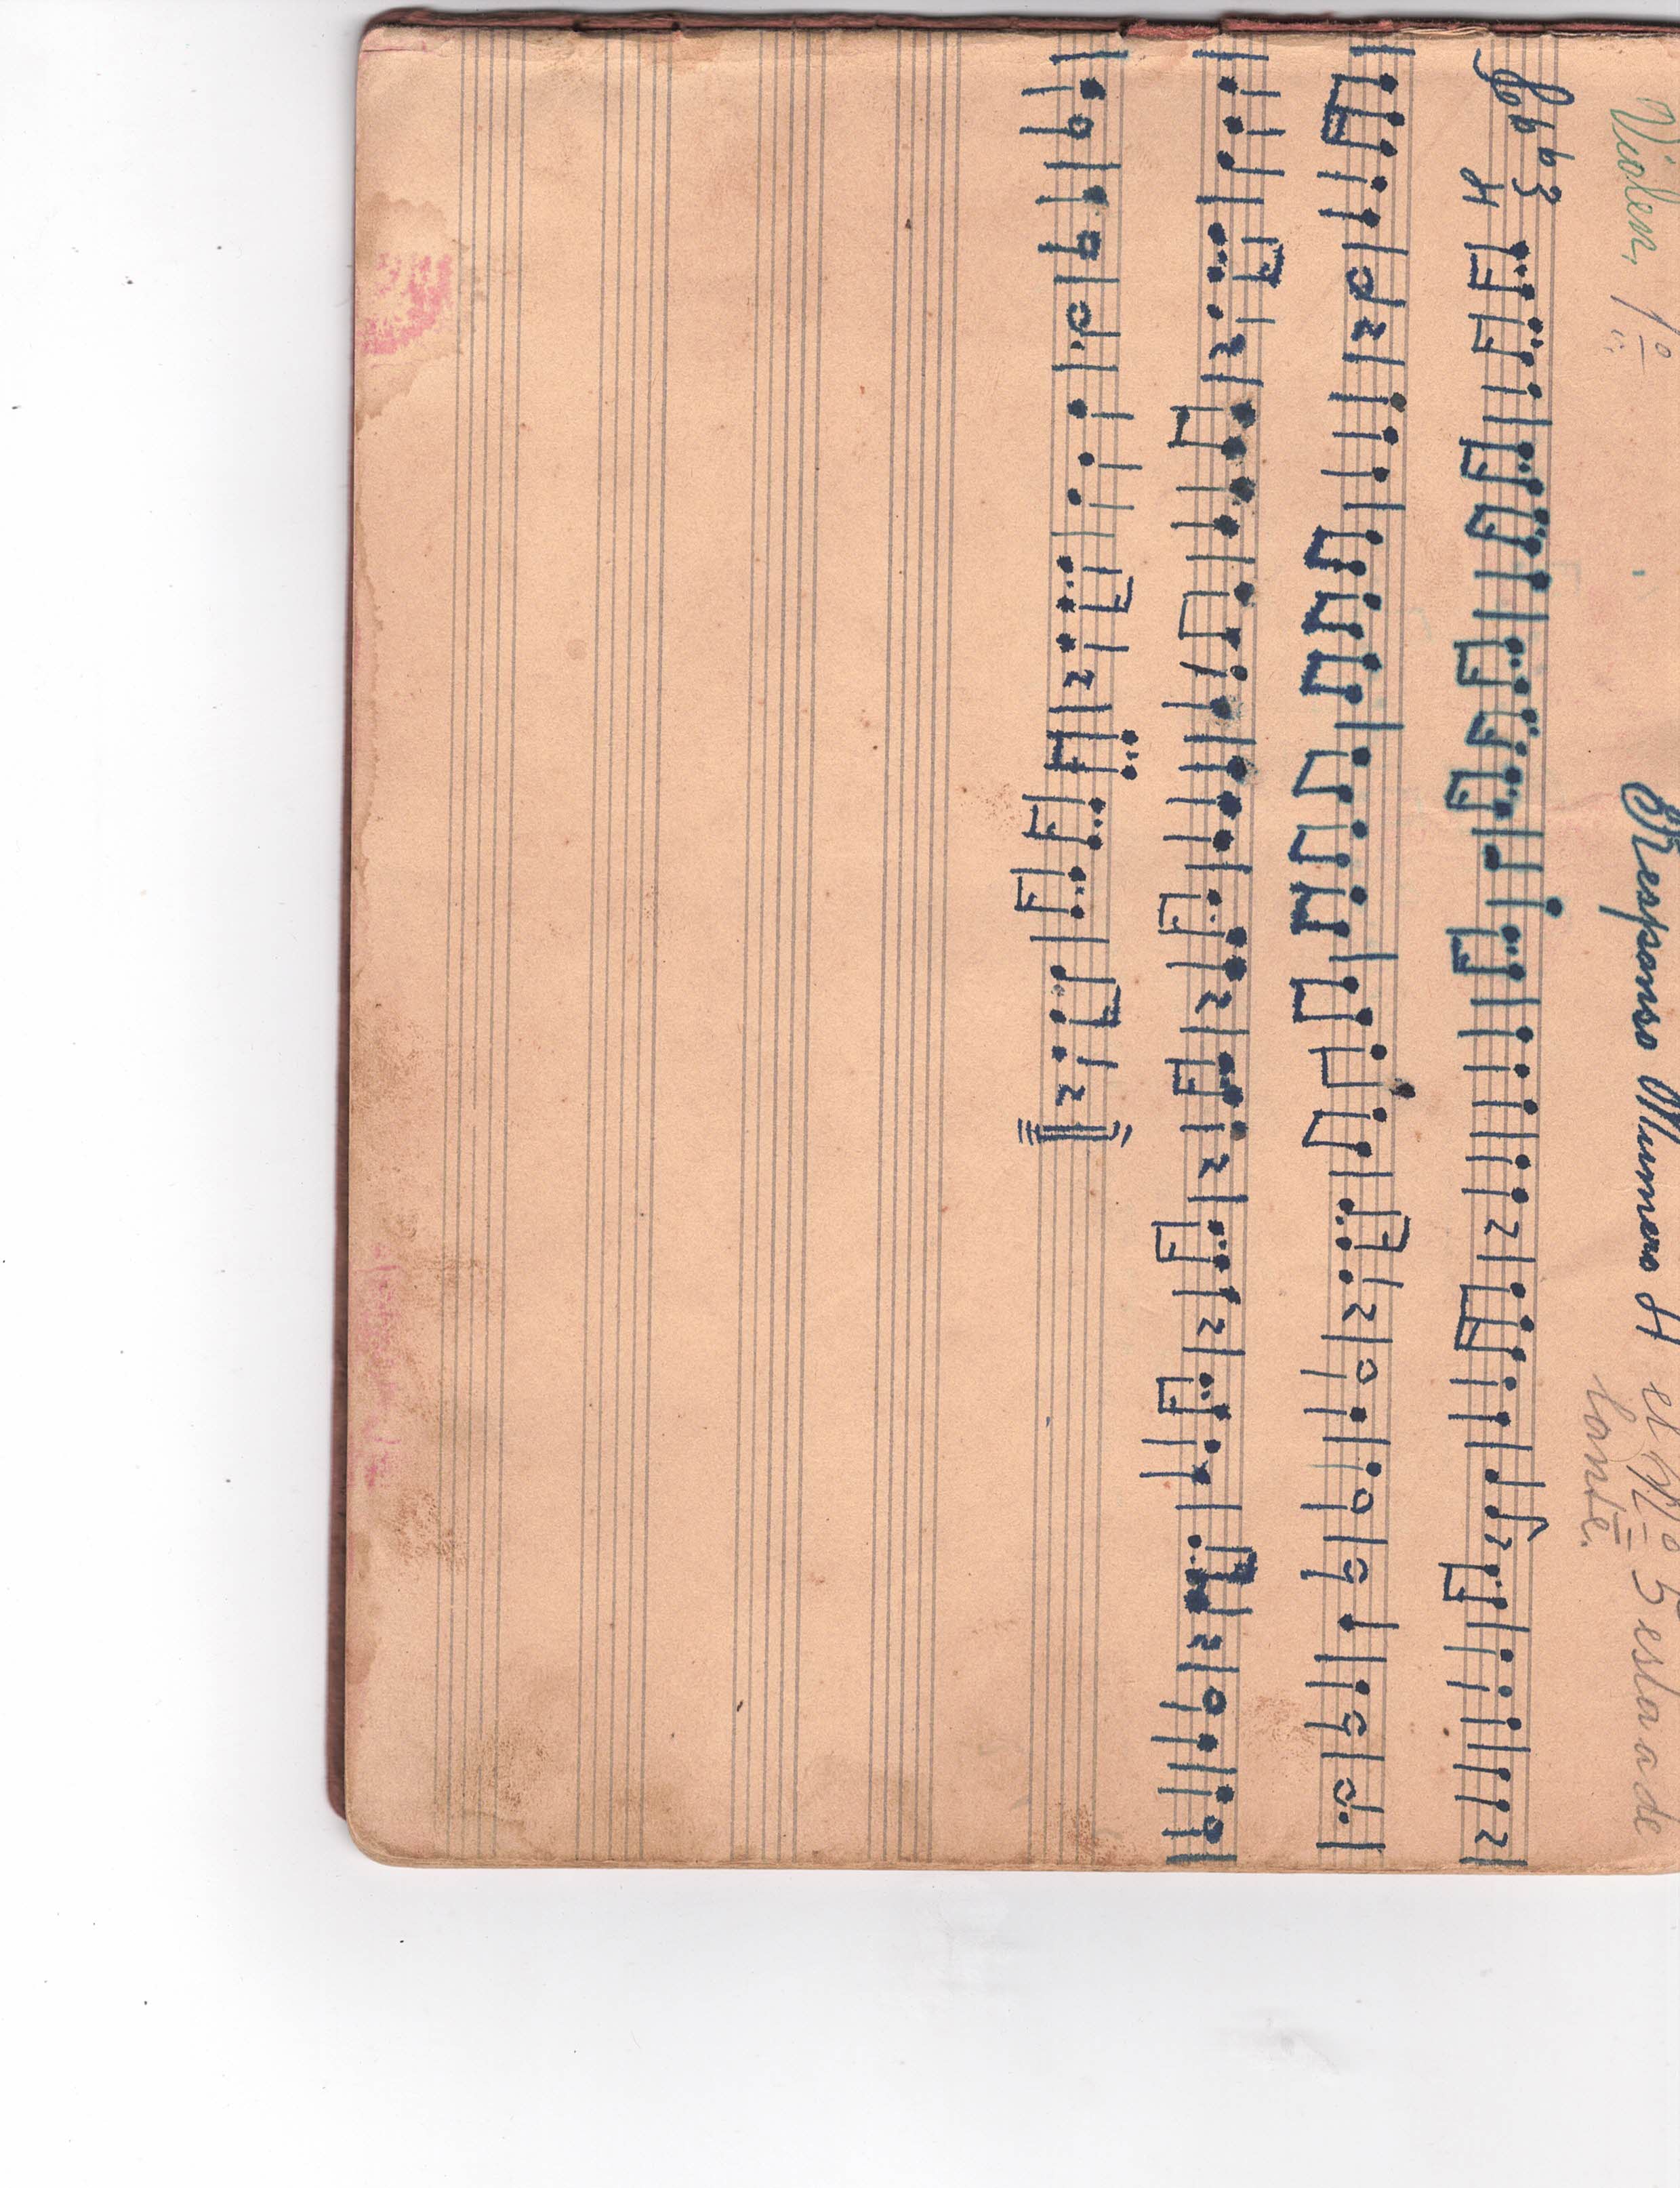 Violin, 1º Responso Numero 4 el Nº 5 esta a de
lante.
3
4